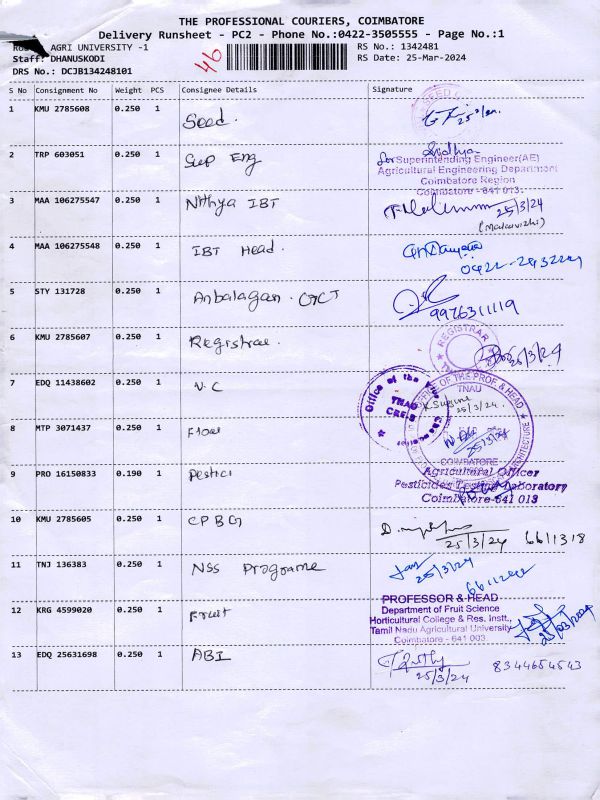 THE PROFESSIONAL COURIERS, COIMBATORE
Delivery Runsheet - PC2 - Phone No.:0422-3505555 - Page No.:1
AGRI UNIVERSITY -1
46
RS No.: 1342481
Staff: DHANUSKODI
RS Date: 25-Mar-2024
DRS No.: DCJB134248101
S No Consignment No Weight PCS Consignee Details Signature
1 KMU 2785608 0.250 1 Seed.
2 TRP 603051 0.250 1 Sup Eng
for Superintending Engineer(AE)
Agricultural Engineering Department
Coimbatore Region
Coimbatore - 641 013.
3 MAA 106275547 0.250 1 Nithya IBT 25/3/24
4 MAA 106275548 0.250 1 IBT Head.
5 STY 131728 0.250 1 Anbalagan. 9976311119
6 KMU 2785607 0.250 1 Registrar. REGISTRAR 25/3/24
7 EDQ 11438602 0.250 1 V.C
Office of the
TNAU
OFFICE OF THE PROF. & HEAD
TNAU
25/3/24.
8 MTP 3071437 0.250 1 Floar 25/3/24
COIMBATORE
9 PRO 16150833 0.190 1 Pestici
Agricultural Officer
Pesticides Testing Laboratory
Coimbatore-641 013
10 KMU 2785605 0.250 1 CPBG 25/3/24 6611318
11 TNJ 136383 0.250 1 NSS Programe 25/3/24
12 KRG 4599020 0.250 1 Fruit
PROFESSOR & HEAD
Department of Fruit Science
Horticultural College & Res. Instt.,
Tamil Nadu Agricultural University
Coimbatore - 641 003
25/03/2024
13 EDQ 25631698 0.250 1 ABI 25/3/24 8344654543